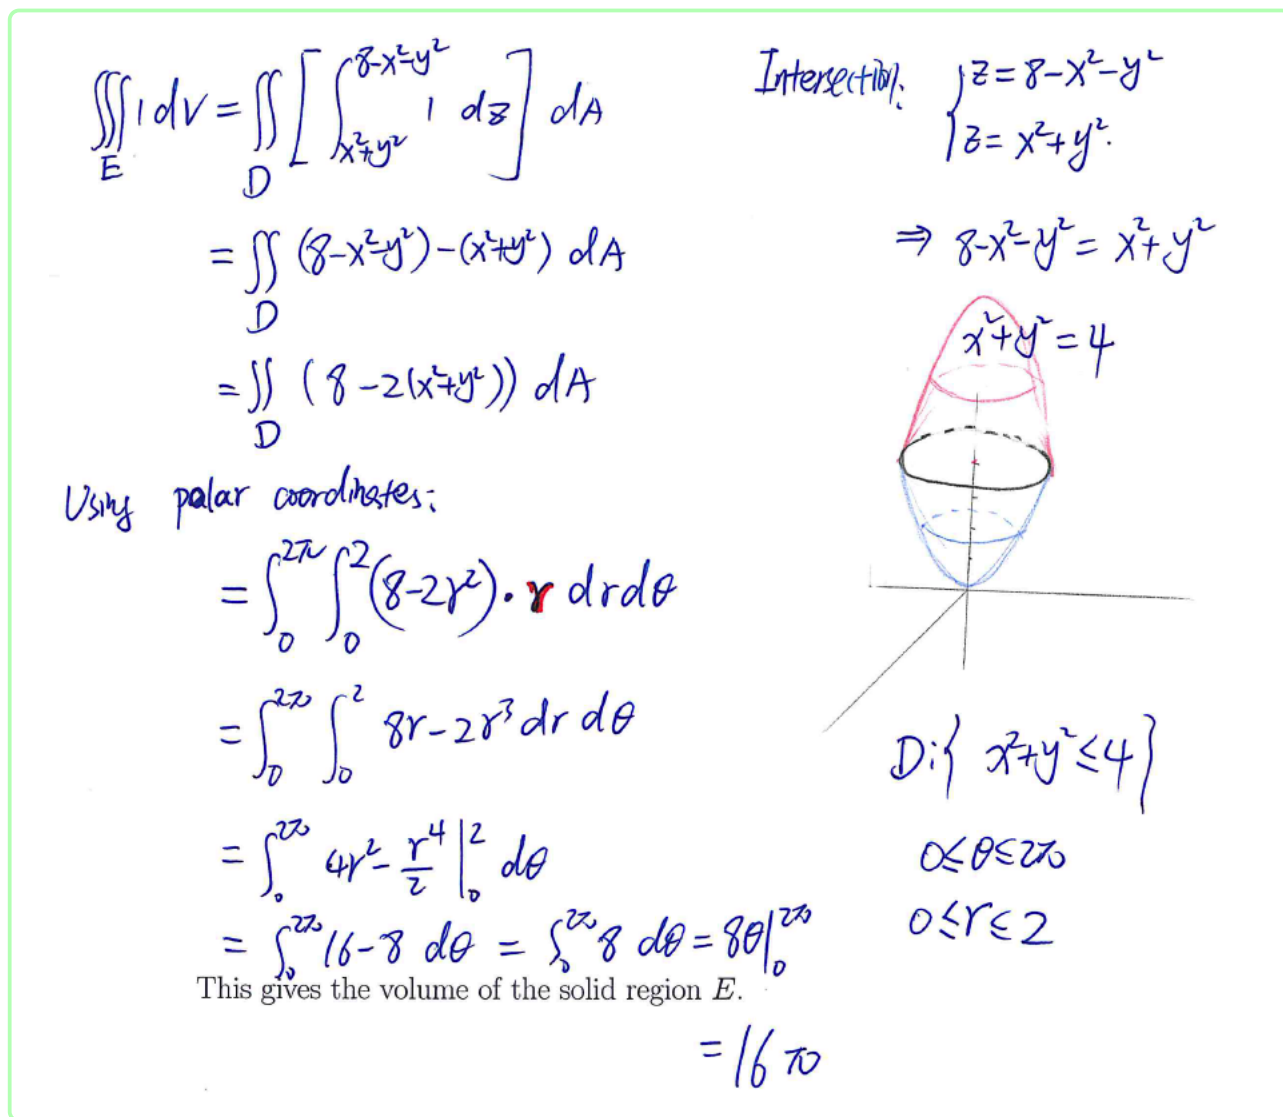 ∭_E 1 dV = ∬_D [ ∫_{x²+y²}^{8-x²-y²} 1 dz ] dA
= ∬_D (8-x²-y²)-(x²+y²) dA
= ∬_D (8-2(x²+y²)) dA
Using polar coordinates:
= ∫_0^{2π} ∫_0^2 (8-2r²)·r dr dθ
= ∫_0^{2π} ∫_0^2 8r-2r³ dr dθ
= ∫_0^{2π} 4r²- r⁴/2 |_0^2 dθ
= ∫_0^{2π} 16-8 dθ = ∫_0^{2π} 8 dθ = 8θ|_0^{2π}
This gives the volume of the solid region E.
= 16π
Intersection: { z = 8-x²-y²
z = x²+y².
⇒ 8-x²-y² = x²+y²
x²+y² = 4
D:{ x²+y² ≤ 4 }
0≤θ≤2π
0≤r≤2